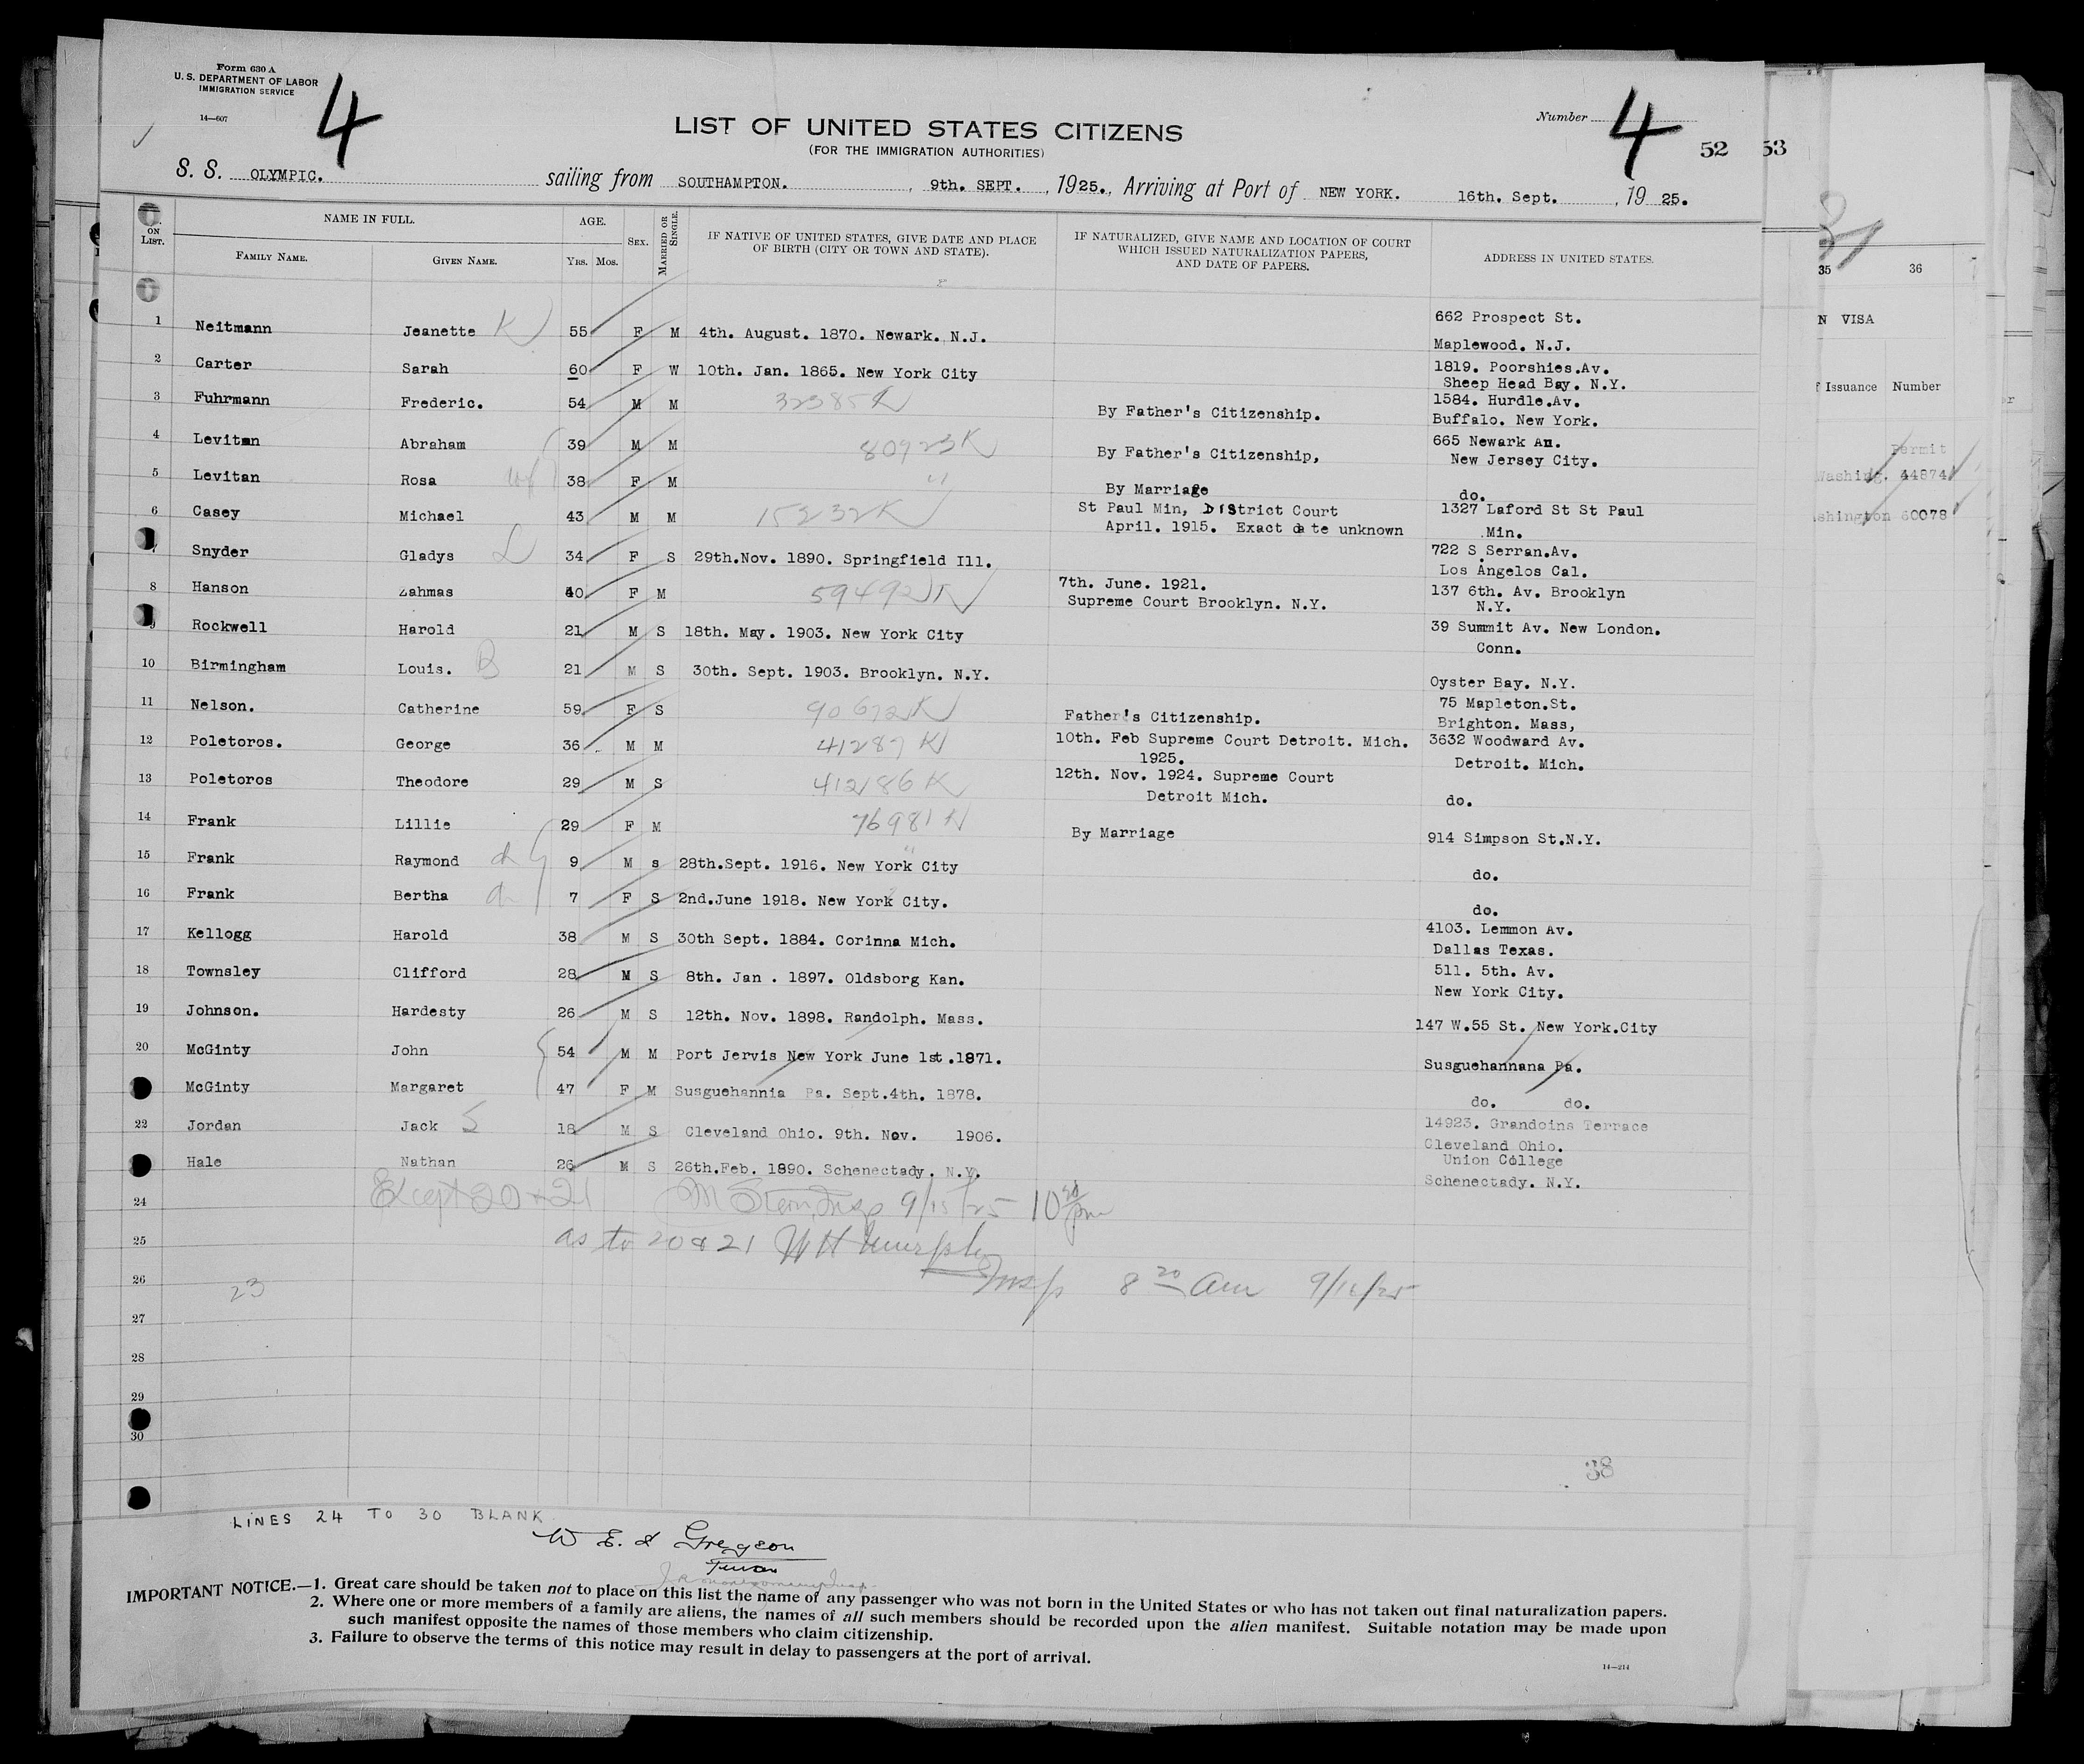 Form 630 A
U. S. DEPARTMENT OF LABOR
IMMIGRATION SERVICE
14—607
4
LIST OF UNITED STATES CITIZENS
(FOR THE IMMIGRATION AUTHORITIES)
Number 4
52 53
S. S. OLYMPIC. sailing from SOUTHAMPTON. , 9th. SEPT. , 1925., Arriving at Port of NEW YORK. 16th. Sept. , 19 25.
ON LIST. NAME IN FULL. AGE. SEX. MARRIED OR SINGLE. IF NATIVE OF UNITED STATES, GIVE DATE AND PLACE OF BIRTH (CITY OR TOWN AND STATE). IF NATURALIZED, GIVE NAME AND LOCATION OF COURT WHICH ISSUED NATURALIZATION PAPERS, AND DATE OF PAPERS. ADDRESS IN UNITED STATES.
FAMILY NAME. GIVEN NAME. YRS. MOS.
1 Neitmann Jeanette K 55 F M 4th. August. 1870. Newark. N.J. 662 Prospect St. Maplewood. N.J.
2 Carter Sarah 60 F W 10th. Jan. 1865. New York City 1819. Poorshies.Av. Sheep Head Bay. N.Y.
3 Fuhrmann Frederic. 54 M M 32385 K By Father's Citizenship. 1584. Hurdle.Av. Buffalo. New York.
4 Levitan Abraham 39 M M 80923 K By Father's Citizenship, 665 Newark An. New Jersey City.
5 Levitan Rosa wf 38 F M " By Marriage do.
6 Casey Michael 43 M M 15232 K St Paul Min, District Court April. 1915. Exact date unknown 1327 Laford St St Paul Min.
7 Snyder Gladys L 34 F S 29th.Nov. 1890. Springfield Ill. 722 S Serran.Av. Los Angelos Cal.
8 Hanson Zahmas 40 F M 59492 K 7th. June. 1921. Supreme Court Brooklyn. N.Y. 137 6th. Av. Brooklyn N.Y.
9 Rockwell Harold 21 M S 18th. May. 1903. New York City 39 Summit Av. New London. Conn.
10 Birmingham Louis. B 21 M S 30th. Sept. 1903. Brooklyn. N.Y. Oyster Bay. N.Y.
11 Nelson. Catherine 59 F S 90672 K Father's Citizenship. 75 Mapleton.St. Brighton. Mass,
12 Poletoros. George 36 M M 41287 K 10th. Feb Supreme Court Detroit. Mich. 1925. 3632 Woodward Av. Detroit. Mich.
13 Poletoros Theodore 29 M S 412186 K 12th. Nov. 1924. Supreme Court Detroit Mich. do.
14 Frank Lillie 29 F M 76981 K By Marriage 914 Simpson St.N.Y.
15 Frank Raymond ch 9 M s 28th.Sept. 1916. New York City do.
16 Frank Bertha ch 7 F S 2nd.June 1918. New York City. do.
17 Kellogg Harold 38 M S 30th Sept. 1884. Corinna Mich. 4103. Lemmon Av. Dallas Texas.
18 Townsley Clifford 28 M S 8th. Jan . 1897. Oldsborg Kan. 511. 5th. Av. New York City.
19 Johnson. Hardesty 26 M S 12th. Nov. 1898. Randolph. Mass. 147 W.55 St. New York.City
20 McGinty John 54 M M Port Jervis New York June 1st.1871. Susguehannana Pa.
McGinty Margaret 47 F M Susguehannia Pa. Sept.4th. 1878. do. do.
22 Jordan Jack S 18 M S Cleveland Ohio. 9th. Nov. 1906. 14923. Grandoins Terrace Cleveland Ohio.
Hale Nathan 26 M S 26th.Feb. 1890. Schenectady. N.Y. Union College Schenectady. N.Y.
24 Except 20 + 21 M Stern Insp 9/15/25 10 pm
25 as to 20 & 21 W H Murphy
26 23 Insp 8 20 am 9/16/25
27
28
29
30
38
LINES 24 TO 30 BLANK
IMPORTANT NOTICE.—1. Great care should be taken not to place on this list the name of any passenger who was not born in the United States or who has not taken out final naturalization papers.
2. Where one or more members of a family are aliens, the names of all such members should be recorded upon the alien manifest. Suitable notation may be made upon
such manifest opposite the names of those members who claim citizenship.
3. Failure to observe the terms of this notice may result in delay to passengers at the port of arrival.
14—214
35 36
N VISA
f Issuance Number
Permit
Washing. 44874
shington 60078